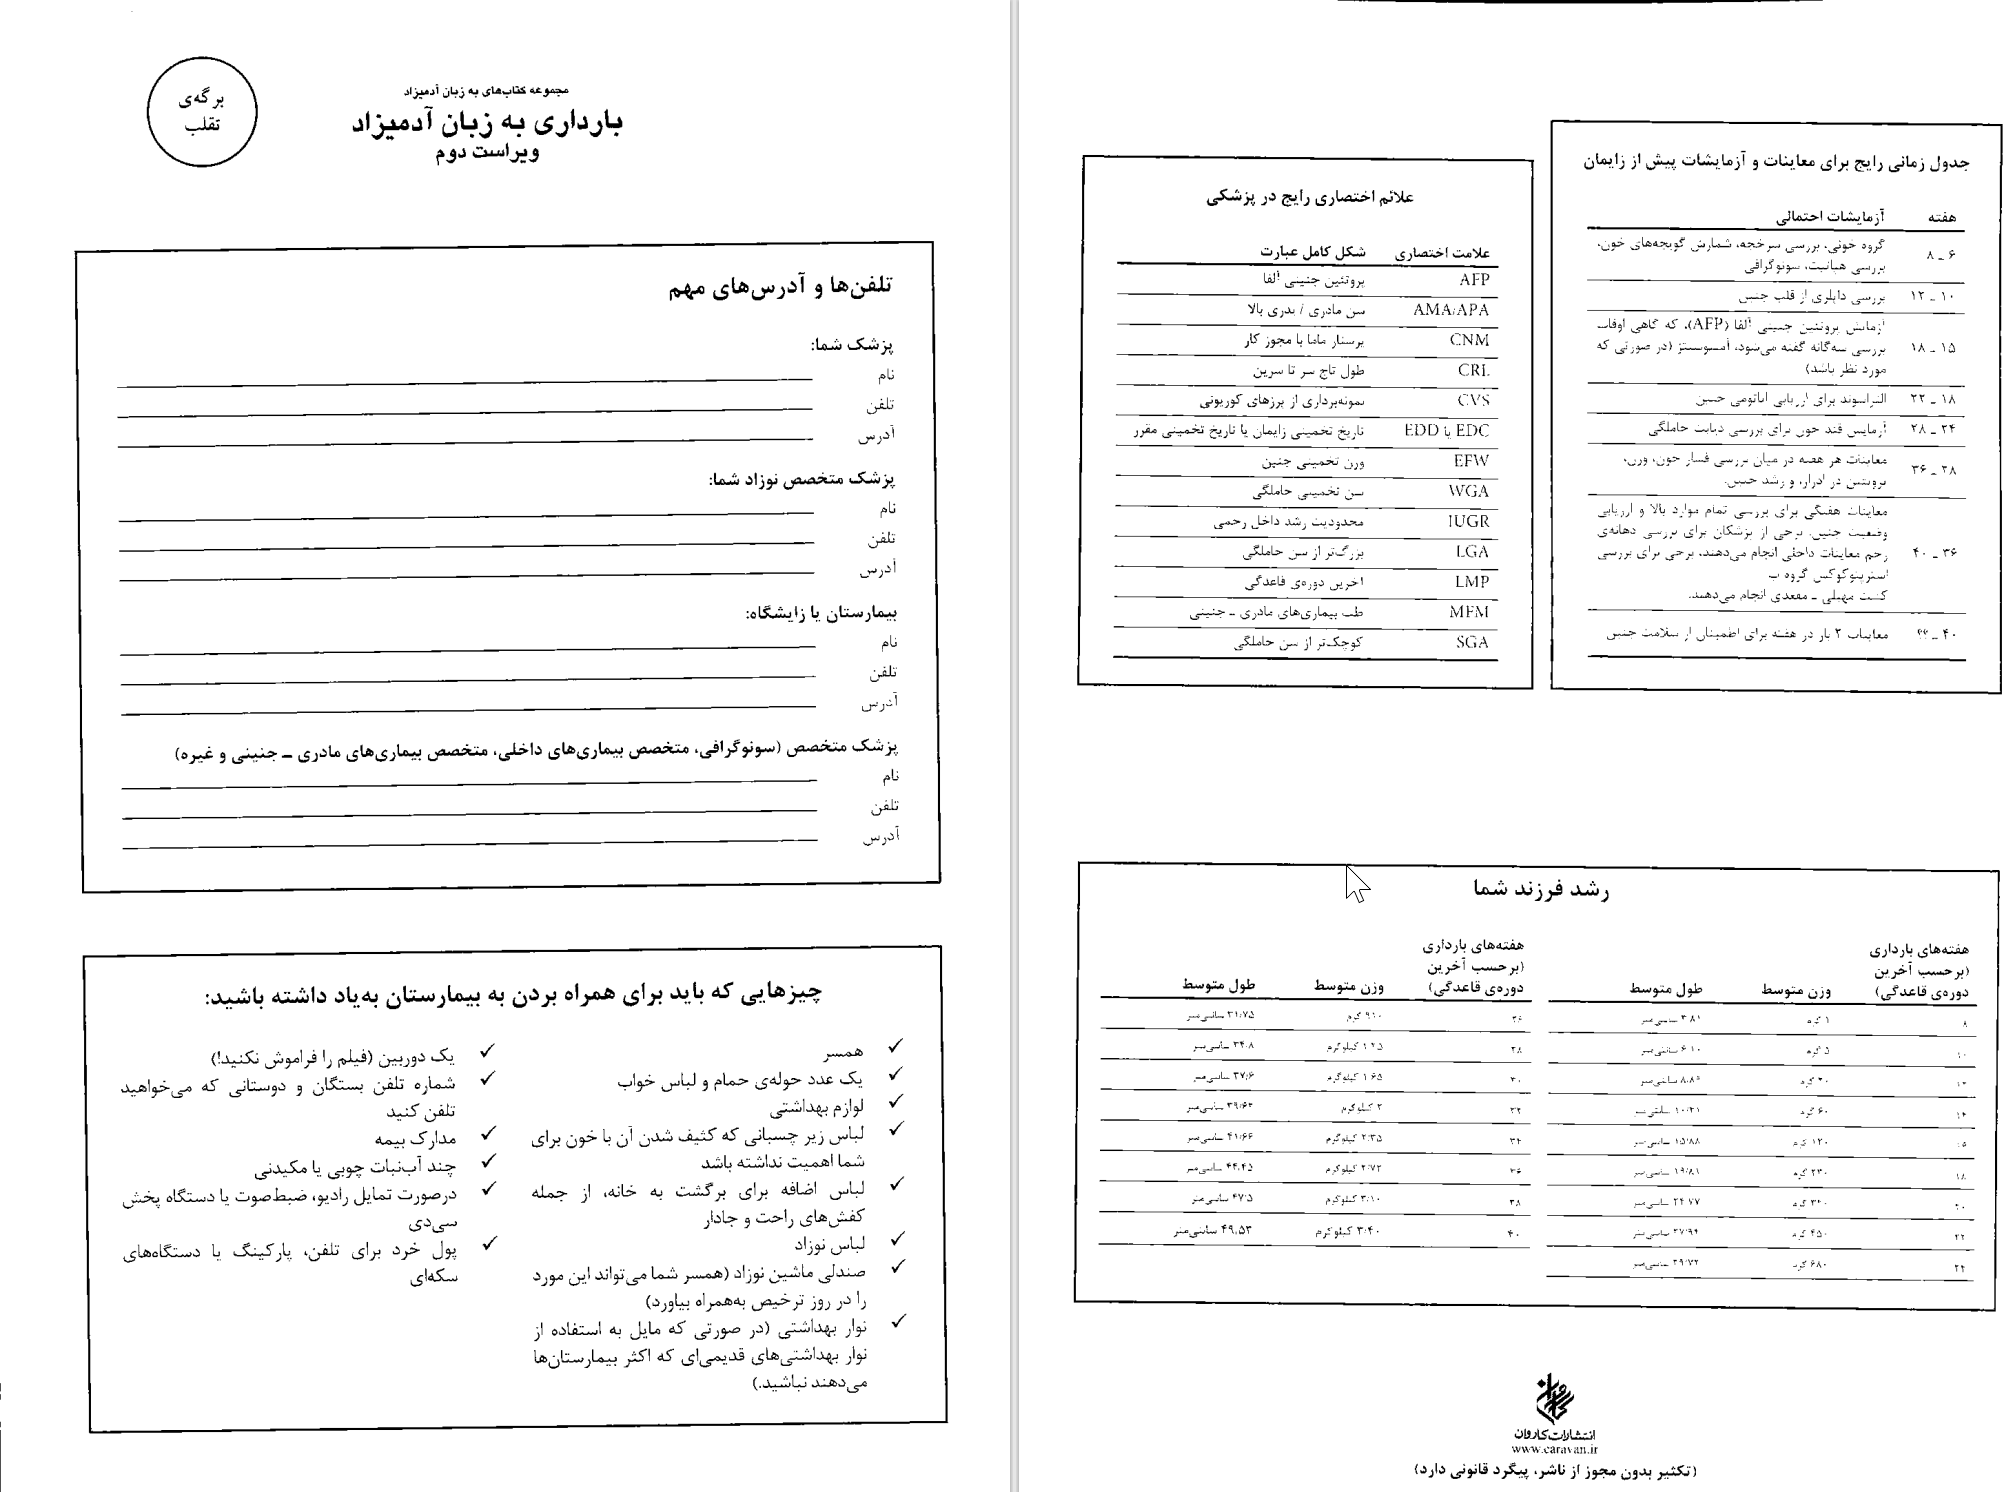 برگه‌ی
تقلب
مجموعه کتاب‌های به زبان آدمیزاد
بارداری به زبان آدمیزاد
ویراست دوم
تلفن‌ها و آدرس‌های مهم
پزشک شما:
نام
تلفن
آدرس
پزشک متخصص نوزاد شما:
نام
تلفن
آدرس
بیمارستان یا زایشگاه:
نام
تلفن
آدرس
پزشک متخصص (سونوگرافی، متخصص بیماری‌های داخلی، متخصص بیماری‌های مادری ـ جنینی و غیره)
نام
تلفن
آدرس
چیزهایی که باید برای همراه بردن به بیمارستان به‌یاد داشته باشید:
✓ همسر
✓ یک عدد حوله‌ی حمام و لباس خواب
✓ لوازم بهداشتی
✓ لباس زیر چسبانی که کثیف شدن آن با خون برای
شما اهمیت نداشته باشد
✓ لباس اضافه برای برگشت به خانه، از جمله
کفش‌های راحت و جادار
✓ لباس نوزاد
✓ صندلی ماشین نوزاد (همسر شما می‌تواند این مورد
را در روز ترخیص به‌همراه بیاورد)
✓ نوار بهداشتی (در صورتی که مایل به استفاده از
نوار بهداشتی‌های قدیمی‌ای که اکثر بیمارستان‌ها
می‌دهند نباشید.)
✓ یک دوربین (فیلم را فراموش نکنید!)
✓ شماره تلفن بستگان و دوستانی که می‌خواهید
تلفن کنید
✓ مدارک بیمه
✓ چند آب‌نبات چوبی یا مکیدنی
✓ درصورت تمایل رادیو، ضبط‌صوت یا دستگاه پخش
سی‌دی
✓ پول خرد برای تلفن، پارکینگ یا دستگاه‌های
سکه‌ای
جدول زمانی رایج برای معاینات و آزمایشات پیش از زایمان
هفته آزمایشات احتمالی
۶ ـ ۸ گروه خونی، بررسی سرخجه، شمارش گویچه‌های خون،
بررسی هپاتیت، سونوگرافی
۱۰ ـ ۱۲ بررسی داپلری از قلب جنین
۱۵ ـ ۱۸ آزمایش پروتئین جنینی آلفا (AFP)، که گاهی اوقات
بررسی سه‌گانه گفته می‌شود، آمنیوسنتز (در صورتی که
مورد نظر باشد)
۱۸ ـ ۲۲ التراسوند برای ارزیابی آناتومی جنین
۲۴ ـ ۲۸ آزمایش قند خون برای بررسی دیابت حاملگی
۲۸ ـ ۳۶ معاینات هر هفته در میان بررسی فشار خون، وزن،
پروتئین در ادرار، و رشد جنین.
۳۶ ـ ۴۰ معاینات هفتگی برای بررسی تمام موارد بالا و ارزیابی
وضعیت جنین. برخی از پزشکان برای بررسی دهانه‌ی
رحم معاینات داخلی انجام می‌دهند، برخی برای بررسی
استرپتوکوکس گروه ب
کشت مهبلی ـ مقعدی انجام می‌دهند.
۴۰ ـ معاینات ۲ بار در هفته برای اطمینان از سلامت جنین
علائم اختصاری رایج در پزشکی
علامت اختصاری شکل کامل عبارت
AFP پروتئین جنینی آلفا
AMA/APA سن مادری / پدری بالا
CNM پرستار ماما با مجوز کار
CRL طول تاج سر تا سرین
CVS نمونه‌برداری از پرزهای کوریونی
EDC یا EDD تاریخ تخمینی زایمان یا تاریخ تخمینی مقرر
EFW وزن تخمینی جنین
WGA سن تخمینی حاملگی
IUGR محدودیت رشد داخل رحمی
LGA بزرگ‌تر از سن حاملگی
LMP آخرین دوره‌ی قاعدگی
MFM طب بیماری‌های مادری ـ جنینی
SGA کوچک‌تر از سن حاملگی
رشد فرزند شما
هفته‌های بارداری
(برحسب آخرین
دوره‌ی قاعدگی) وزن متوسط طول متوسط
۸ ۱ گرم ۳٫۸۱ سانتی‌متر
۱۰ ۵ گرم ۶٫۱۰ سانتی‌متر
گرم سانتی‌متر
۱۴ ۶۰ گرم سانتی‌متر
۱۲۰ گرم ۱۵/۸۸ سانتی‌متر
۱۸ ۲۳۰ گرم ۱۹/۸۱ سانتی‌متر
۲۰ گرم ۲۴٫۷۷ سانتی‌متر
۲۲ ۴۵۰ گرم ۲۷/۹۴ سانتی‌متر
۲۴ ۶۸۰ گرم ۲۹/۷۲ سانتی‌متر
هفته‌های بارداری
(برحسب آخرین
دوره‌ی قاعدگی) وزن متوسط طول متوسط
۲۶ ۹۱۰ گرم ۳۱/۷۵ سانتی‌متر
۲۸ کیلوگرم ۳۴٫۸ سانتی‌متر
۳۰ ۱٫۶۵ کیلوگرم ۳۷/۶ سانتی‌متر
۳۲ ۲ کیلوگرم ۳۹/۶۲ سانتی‌متر
۳۴ ۲/۳۵ کیلوگرم ۴۱/۶۶ سانتی‌متر
۳۶ ۲/۷۲ کیلوگرم ۴۴٫۴۵ سانتی‌متر
۳۸ ۳/۱۰ کیلوگرم ۴۷/۵ سانتی‌متر
۴۰ ۳/۴۰ کیلوگرم ۴۹٫۵۳ سانتی‌متر
انتشارات کاروان
www.caravan.ir
(تکثیر بدون مجوز از ناشر، پیگرد قانونی دارد)